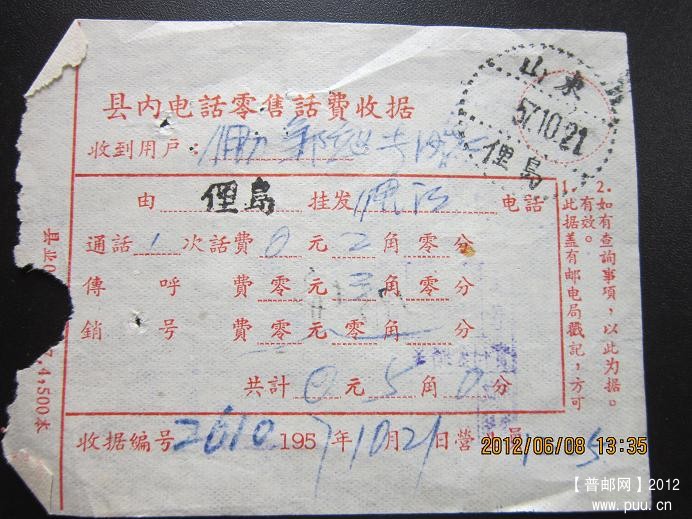 县内电話零售話費收据
山東
57.10.21
俚島
收到用户：
由 俚島 挂发 电話
通話 1 次話費 0 元 2 角 零 分
傳呼費 零 元 3 角 零 分
銷号費 零 元 零 角 分
共計 0 元 5 角 0 分
收据編号 2610 1957年10月21日营 員
1.此据盖有邮电局戳記，方可有效。
2.如有查詢事項，以此为据。
4,500本
2012/06/08 13:35
【普邮网】2012
www.puu.cn